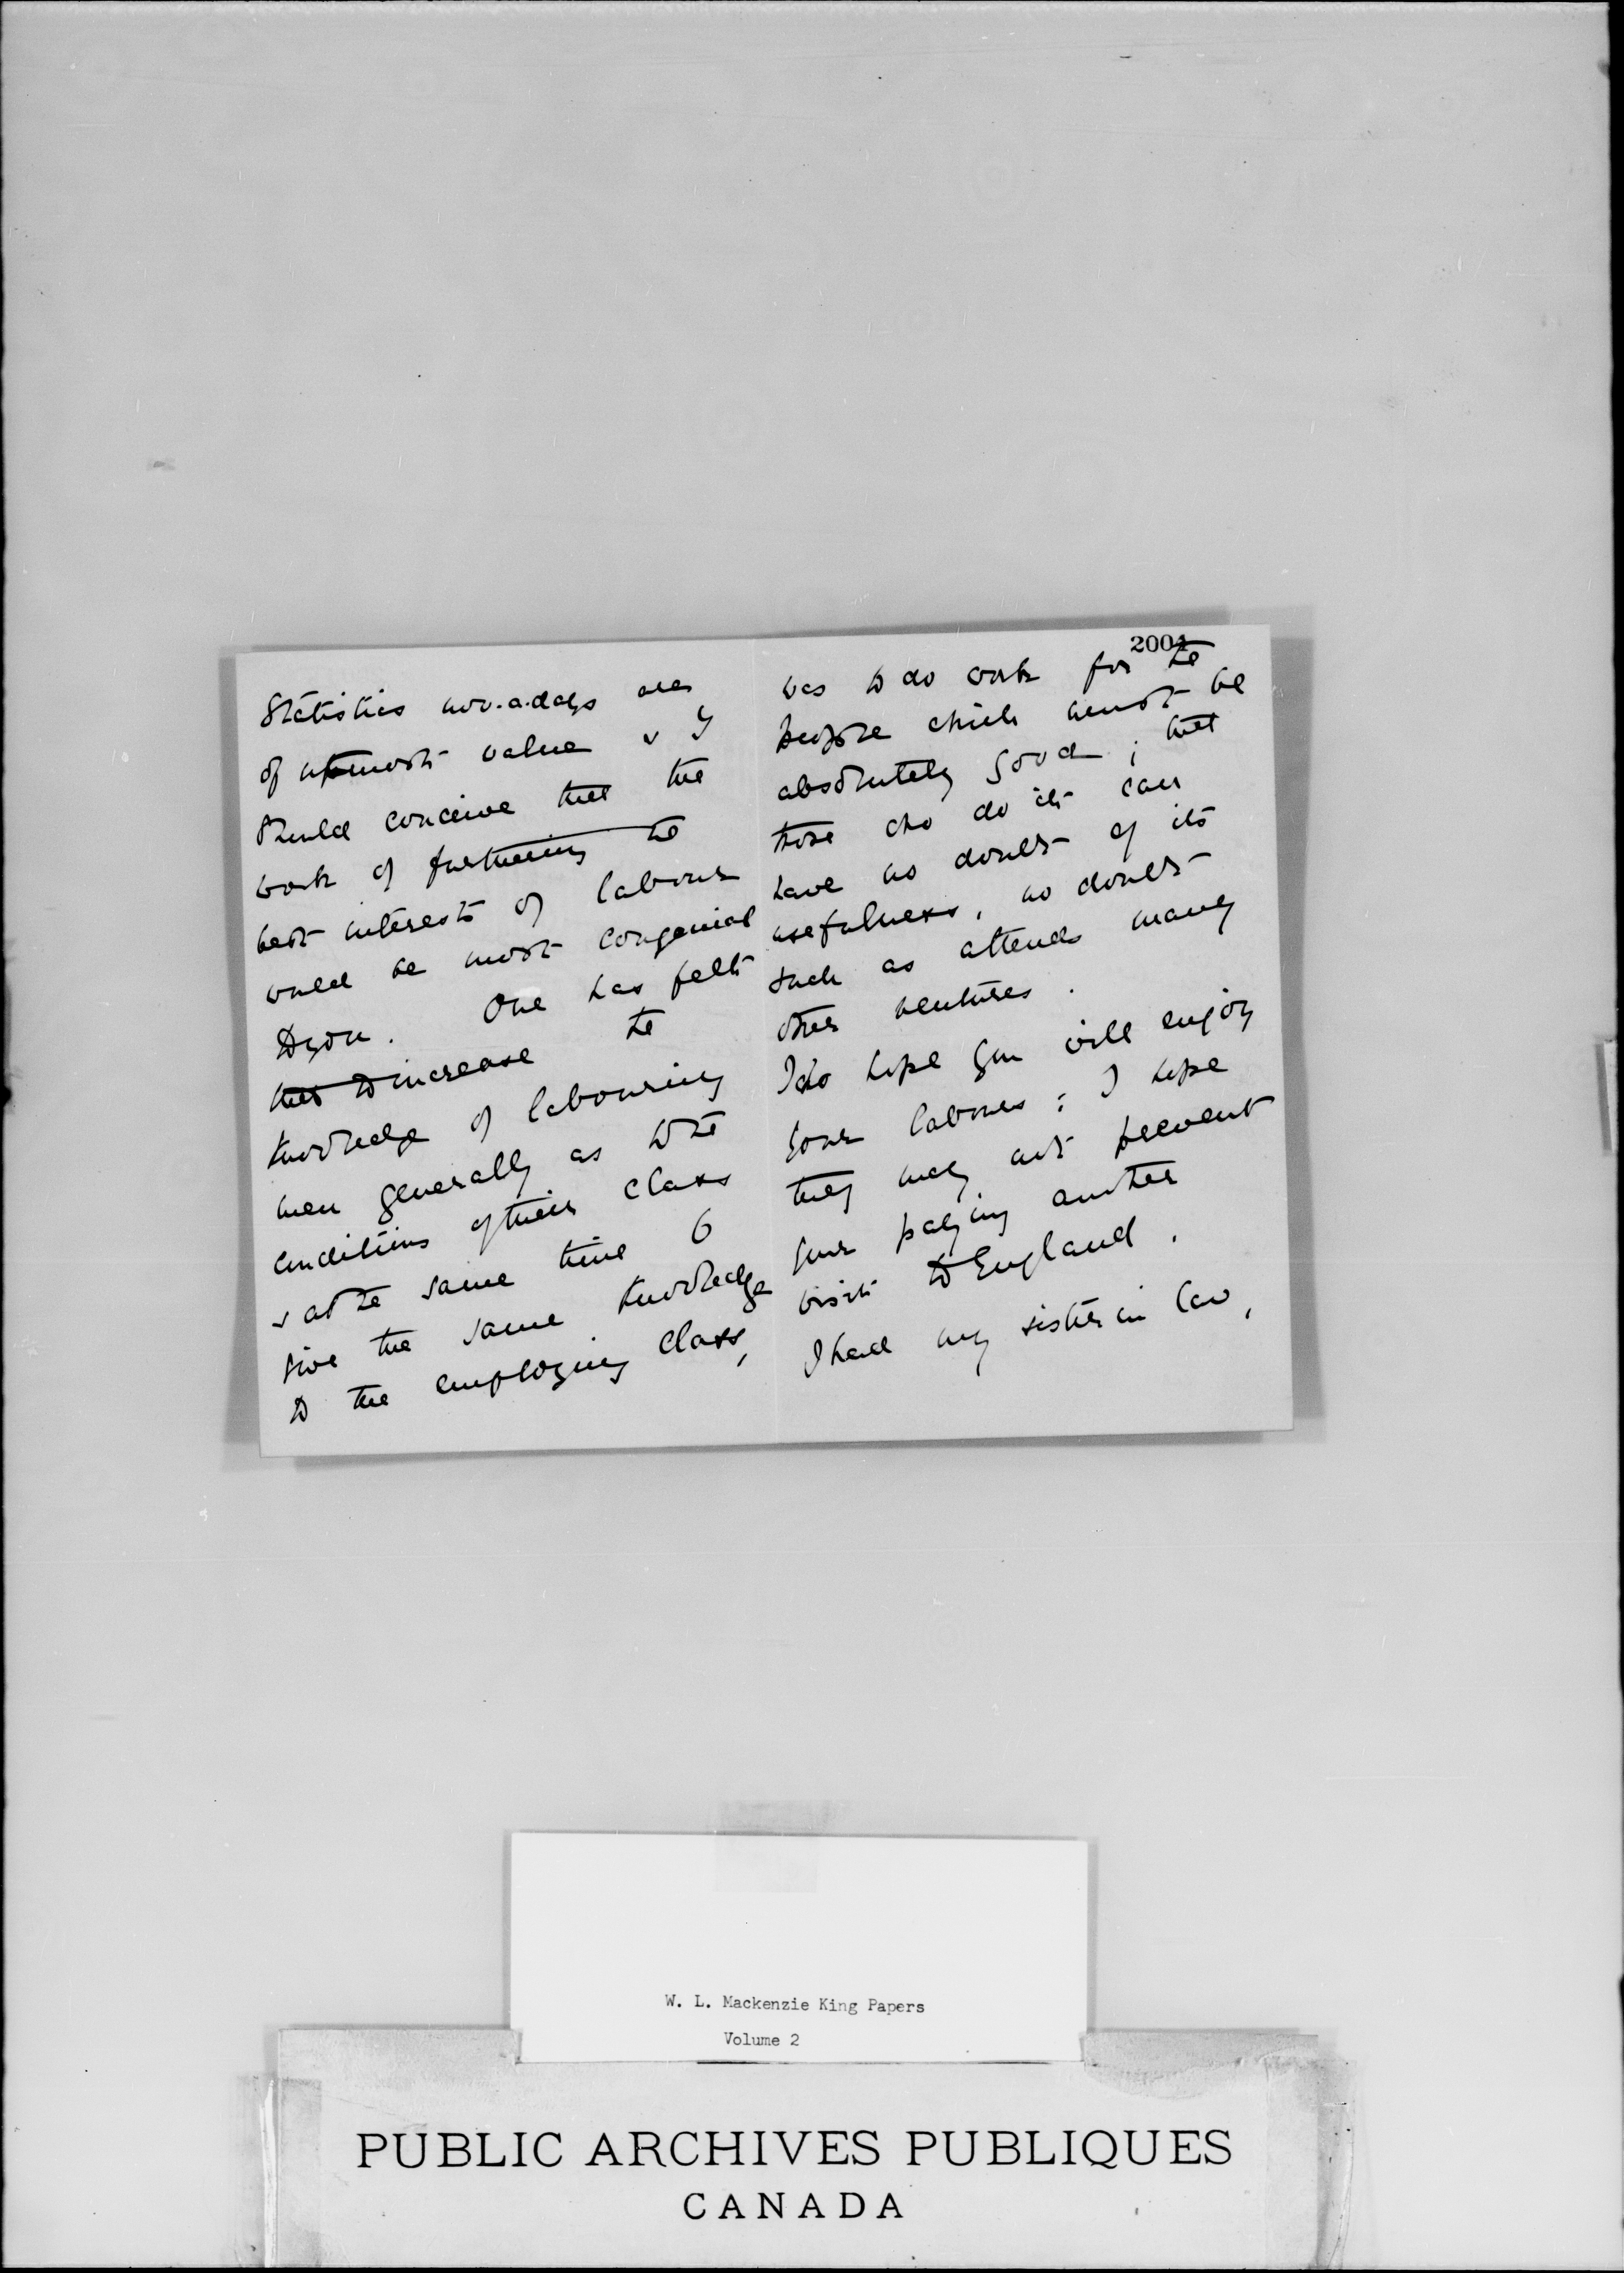 Statistics now.a.days are
of utmost value & I
should conceive that the
work of furthering the
best interests of labour
would be most congenial
to you. One has felt
that to increase the
knowledge of labouring
men generally as to the
conditions of their class
& at the same time to
give the same knowledge
to the employing class,
2004
was to do work for the
people which must be
absolutely good; that
those who do it can
have no doubt of its
usefulness, no doubt
such as attends many
other ventures.
I do hope you will enjoy
your labours: I hope
they may not prevent
your paying another
visit to England.
I had my sister in law,
W. L. Mackenzie King Papers
Volume 2
PUBLIC ARCHIVES PUBLIQUES
CANADA